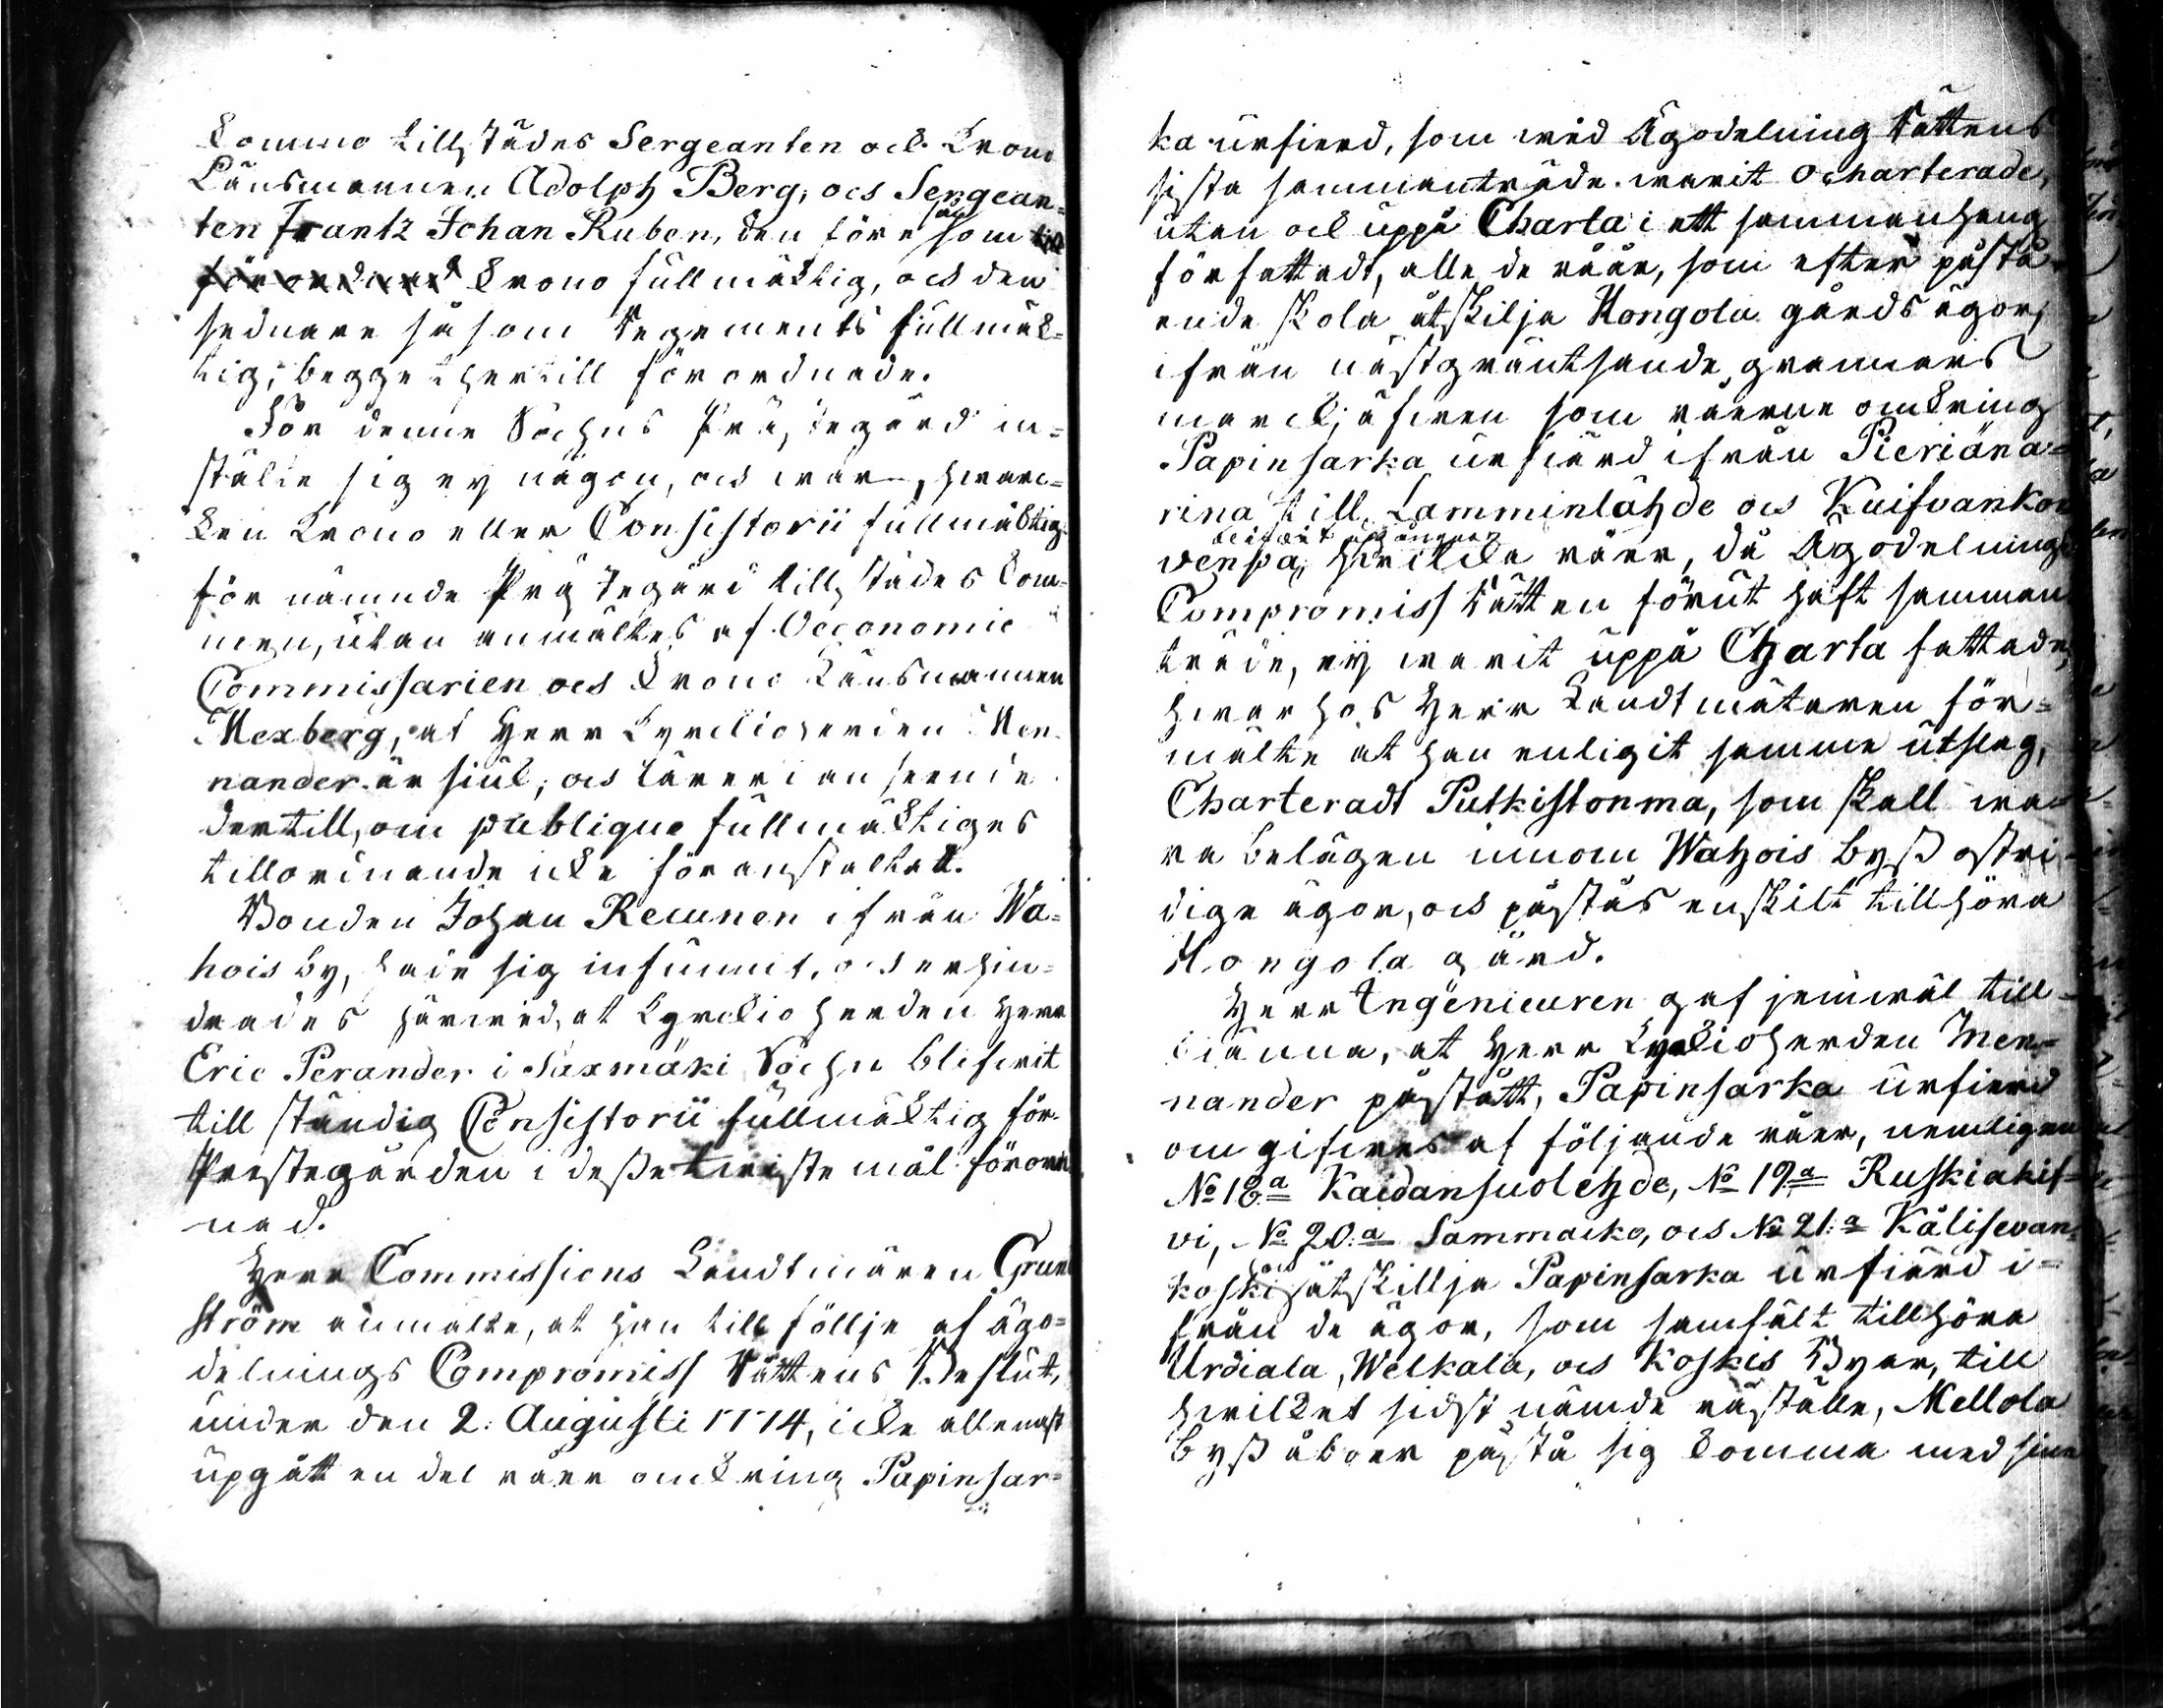 Kommo tillstädes Sergeanten och Krono
Länsmannen Adolph Berg, och Sergean=
ten Frantz Johan Ruben, den förre som
såsom
Krono fullmäktig, och den
sednare såsom Regements fullmäk=
tig, begge hertill förordnade.
För denne Sochns Prästegård in=
stälte sig ey någon, och war hwarc=
ken Krono eller Consistorii fullmäktig
för nämnde Prästegård tillstädes kom=
men, utan anmältes af Oeconomie
Commissarien och Krono Länsmannen
Mexberg, at Herr Kyrckioherden Men=
nander är siuk, och lärer i anseende
dertill, om publique fullmäktiges
tillordnande icke föranstaltat.
Bonden Johan Recunen ifrån Wa=
hois by, hade sig infunnit, och erhin=
drades härwid, at Kyrckioherden Herr
Eric Perander i Saxmäki Sochn blifwit
till ständig Consistorii fullmäktig för
Prestegården i desse twistemål förord
nad.
Herr Commissions Landtmätaren Grun
ström anmälte, at han till föllje af ägo=
delnings Compromiss Rättens Beslut,
under den 2. Augusti 1774, icke allenast
upgått en del råer omkring Papinsar=
ka urfierd, som wid Ägodelning Rättens
sista sammanträde warit ocharterade,
utan och uppå Charta i ett sammanhang
författadt, alle de råår, som efter påstå=
ende skola åtskilja Hongola gårds ägor,
ifrån nästgräntsande grannars
marck; äfwen som råerne omkring
Papinsarka urfiärd ifrån Pieriäna=
rina till Lamminlähde och Kuifvankor
blifwit upgångne
venpä, hwilcka råer, då Ägodelnings
Compromiss Rätten förut haft samman
träde, ey warit uppå Charta fattade,
hwarhos Herr Landtmätaren för=
mälte at han enligit samme utslag,
Charteradt Putkistonma, som skall wa=
ra belägen innom Wahois byss ostri=
dige ägor, och påstås enskilt tillhöra
Hongola gård.
Herr Ingenieuren gaf jemwäl till=
kiänna, at Herr Kyrckioherden Men=
nander påstått, Papinsarka urfierd
omgifwes af följande råer, nemligen
No 18a Kaidansuolehde, No 19a Ruskiakif=
vi, No 20:a Sammacko, och No 21:a Kälisevan=
koski
och
åtskillja Papinsarka urfiärd i=
från de ägor, som samfält tillhöra
Urdiala, Welkala, och Koskis Byar, till
hwilket sidst nämde råställe, Mellola
byss åboer påstå sig komma med sine